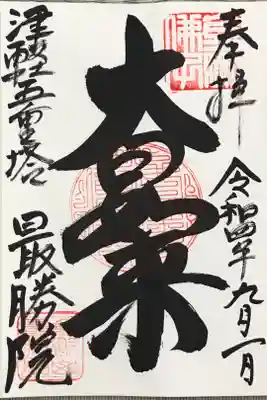 奉拝
令和四年九月一日
大日如来
津軽五重塔
最勝院